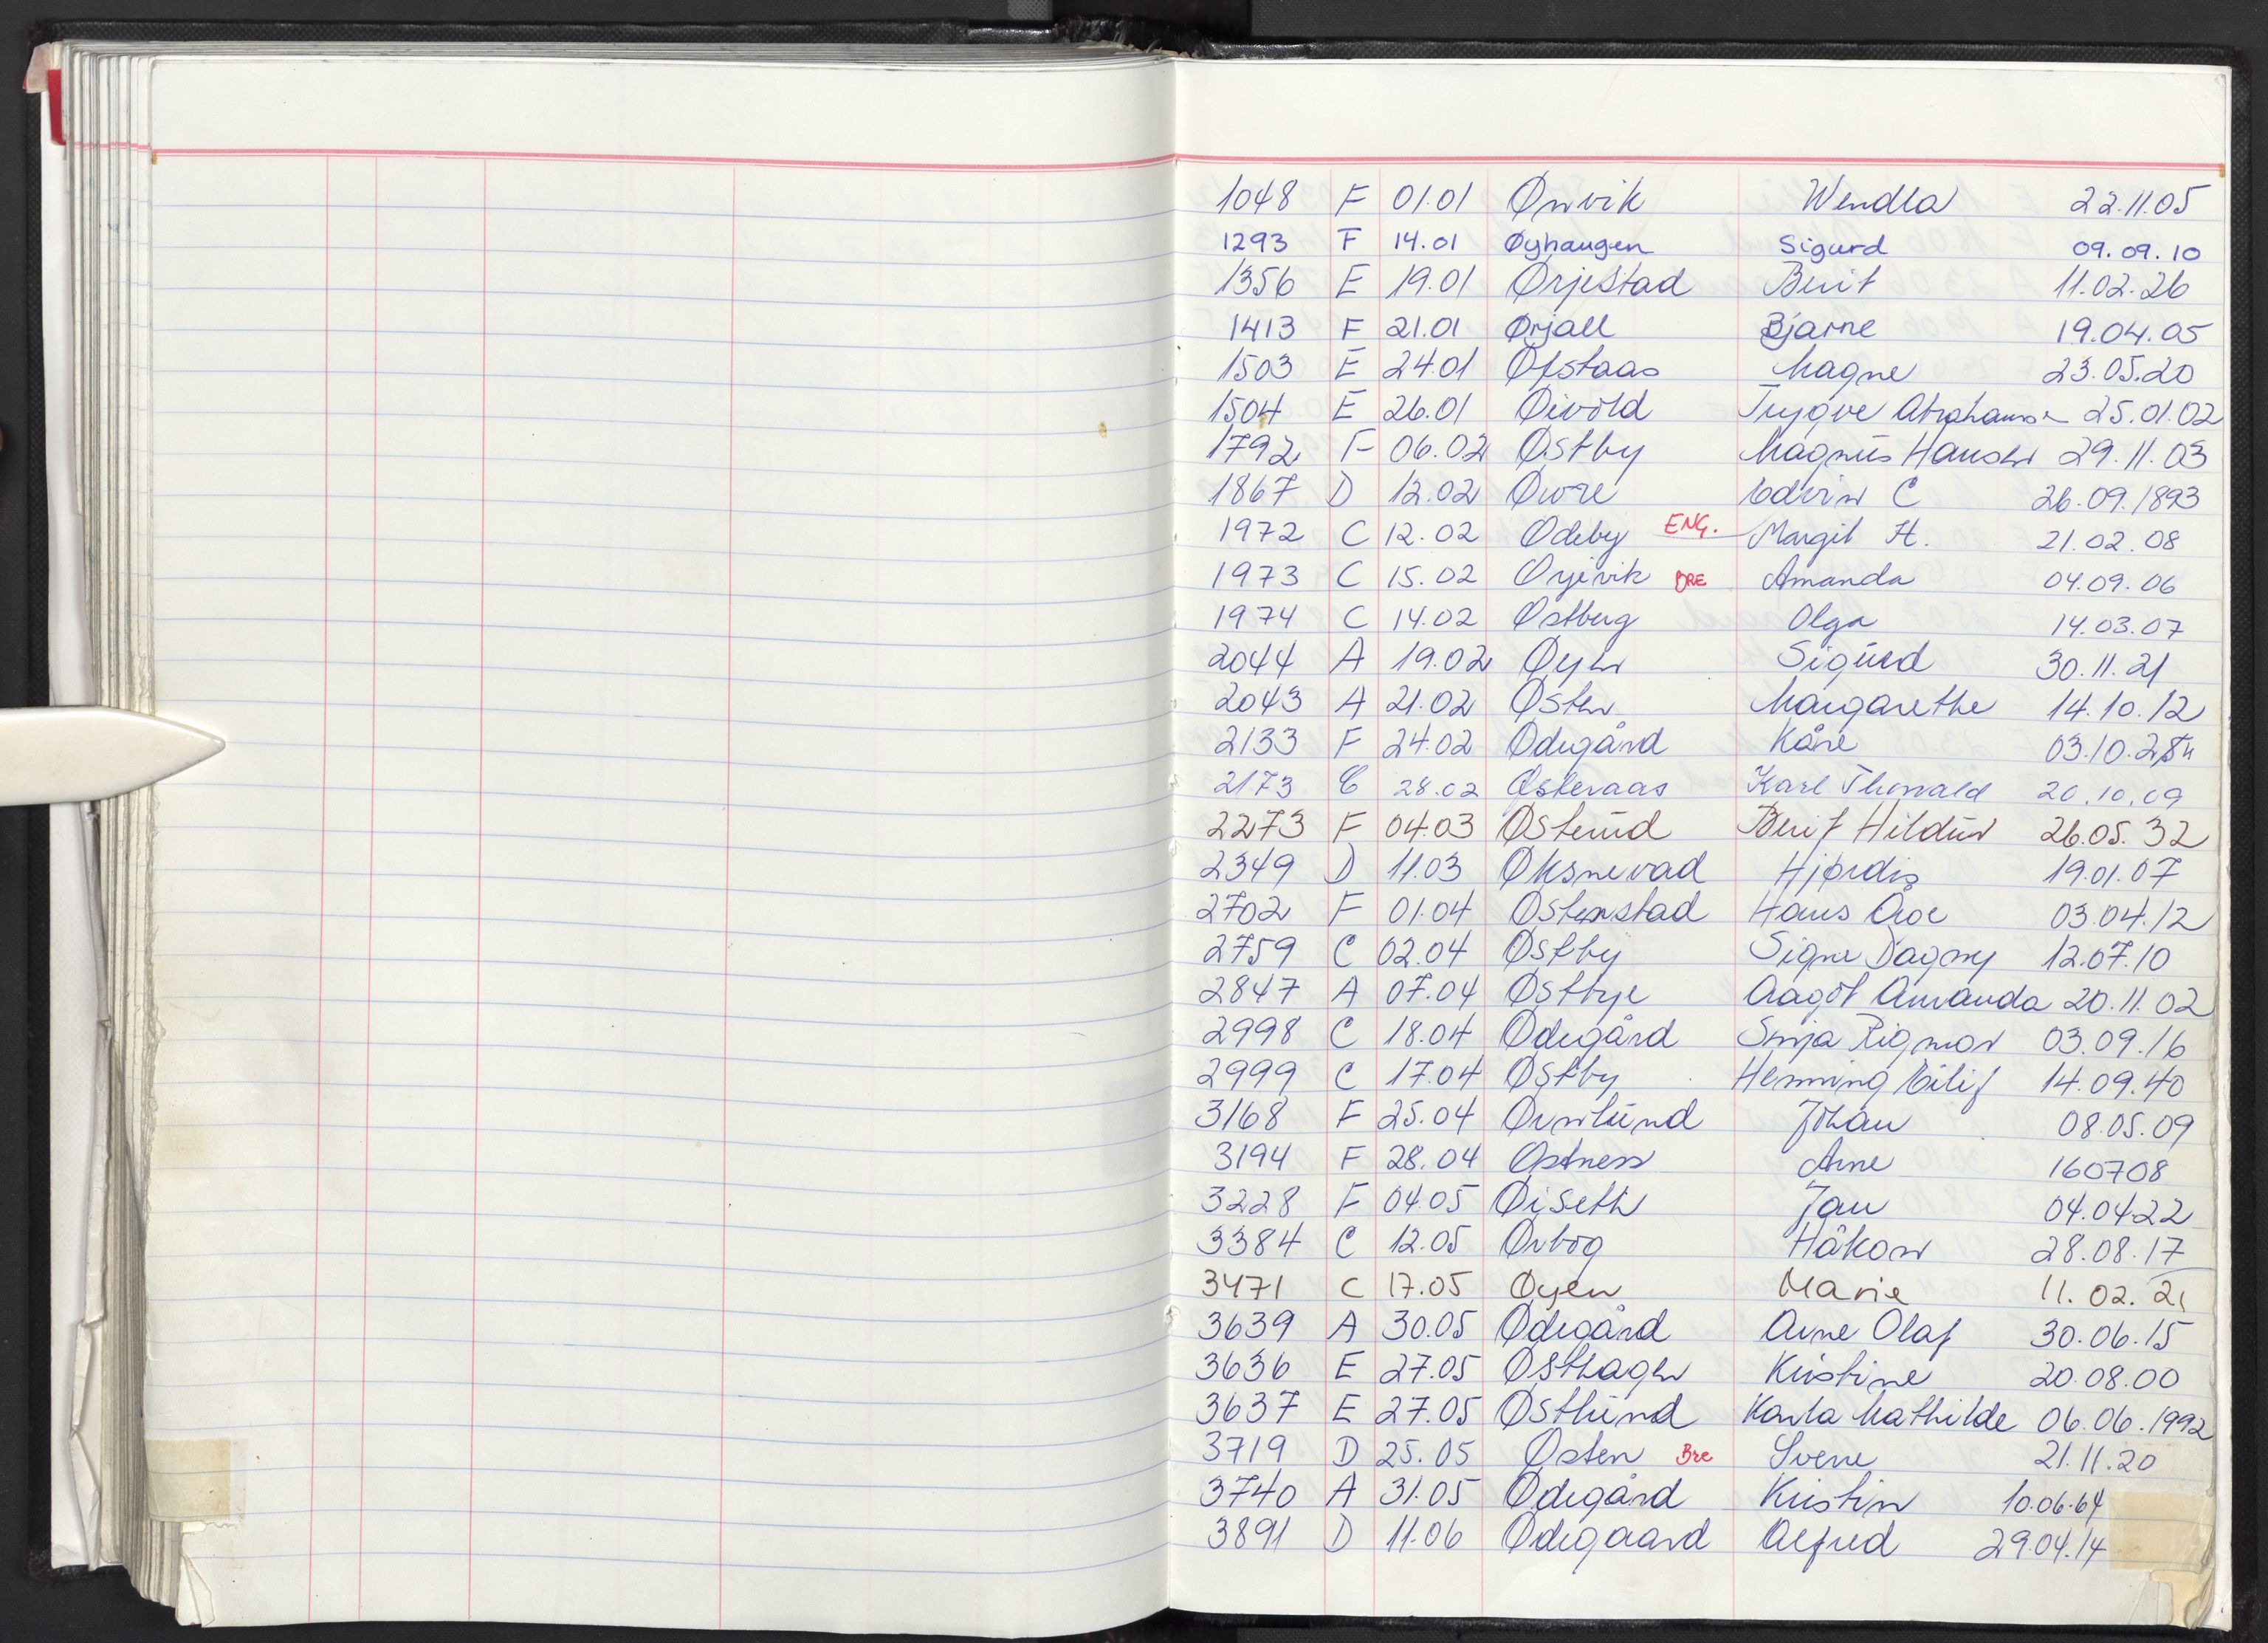 1048 F 01.01 Ørvik Wendla 22.11.05
1293 F 14.01 Øyhaugen Sigurd 09.09.10
1356 E 19.01 Ørjestad Berit 11.02.26
1413 F 21.01 Ørjall Bjarne 19.04.05
1503 E 24.01 Øfstaas Magne 23.05.20
1504 E 26.01 Øivold Trygve 25.01.02
1792 F 06.02 Østby Magnus Hansen 29.11.03
1867 D 12.02 Øvre Edvin C 26.09.1893
1972 C 12.02 Ødeby ENG. Margit H. 21.02.08
1973 C 15.02 BRE Amanda 04.09.06
1974 C 14.02 Østberg Olga 14.03.07
2044 A 19.02 Øyen Sigurd 30.11.21
2043 A 21.02 Østen Margarethe 14.10.12
2133 F 24.02 Ødegård Kåre
2173 C 28.02 Østeraas Karl Thorvald 20.10.09
2273 F 04.03 Østerud Berit Hildur 26.05.32
2349 D 11.03 Øksnevad Hjørdis 19.01.07
2702 F 01.04 Østenstad Hans 03.04.12
2759 C 02.04 Østby Signe Dagny 12.07.10
2847 A 07.04 Østbye Aagot Amanda 20.11.02
2998 C 18.04 Ødegård Rigmor 03.09.16
2999 C 17.04 Østby Henning Eilif 14.09.40
3168 F 25.04 Ørnlund Johan 08.05.09
3194 F 28.04 Østness Arne 160708
3228 F 04.05 Øiseth Jan 04.04.22
3384 C 12.05 Ørbog Håkon 28.08.17
3471 C 17.05 Øyen Marie 11.02.21
3639 A 30.05 Ødegård Arne Olaf 30.06.15
3636 E 27.05 Østhagen Kristine 20.08.00
3637 E 27.05 Østlund Karla Mathilde 06.06.1992
3719 D 25.05 Østen Bre Sverre 21.11.20
3740 A 31.05 Ødegård Kristin 10.06.64
3891 D 11.06 Ødegaard Alfred 29.04.14